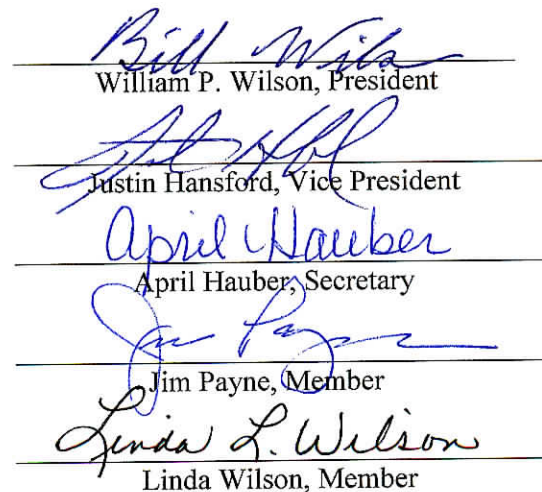 Bill Wils
William P. Wilson, President
Justin Hansford, Vice President
April Hauber
April Hauber, Secretary
Jim Payne
Jim Payne, Member
Linda L. Wilson
Linda Wilson, Member